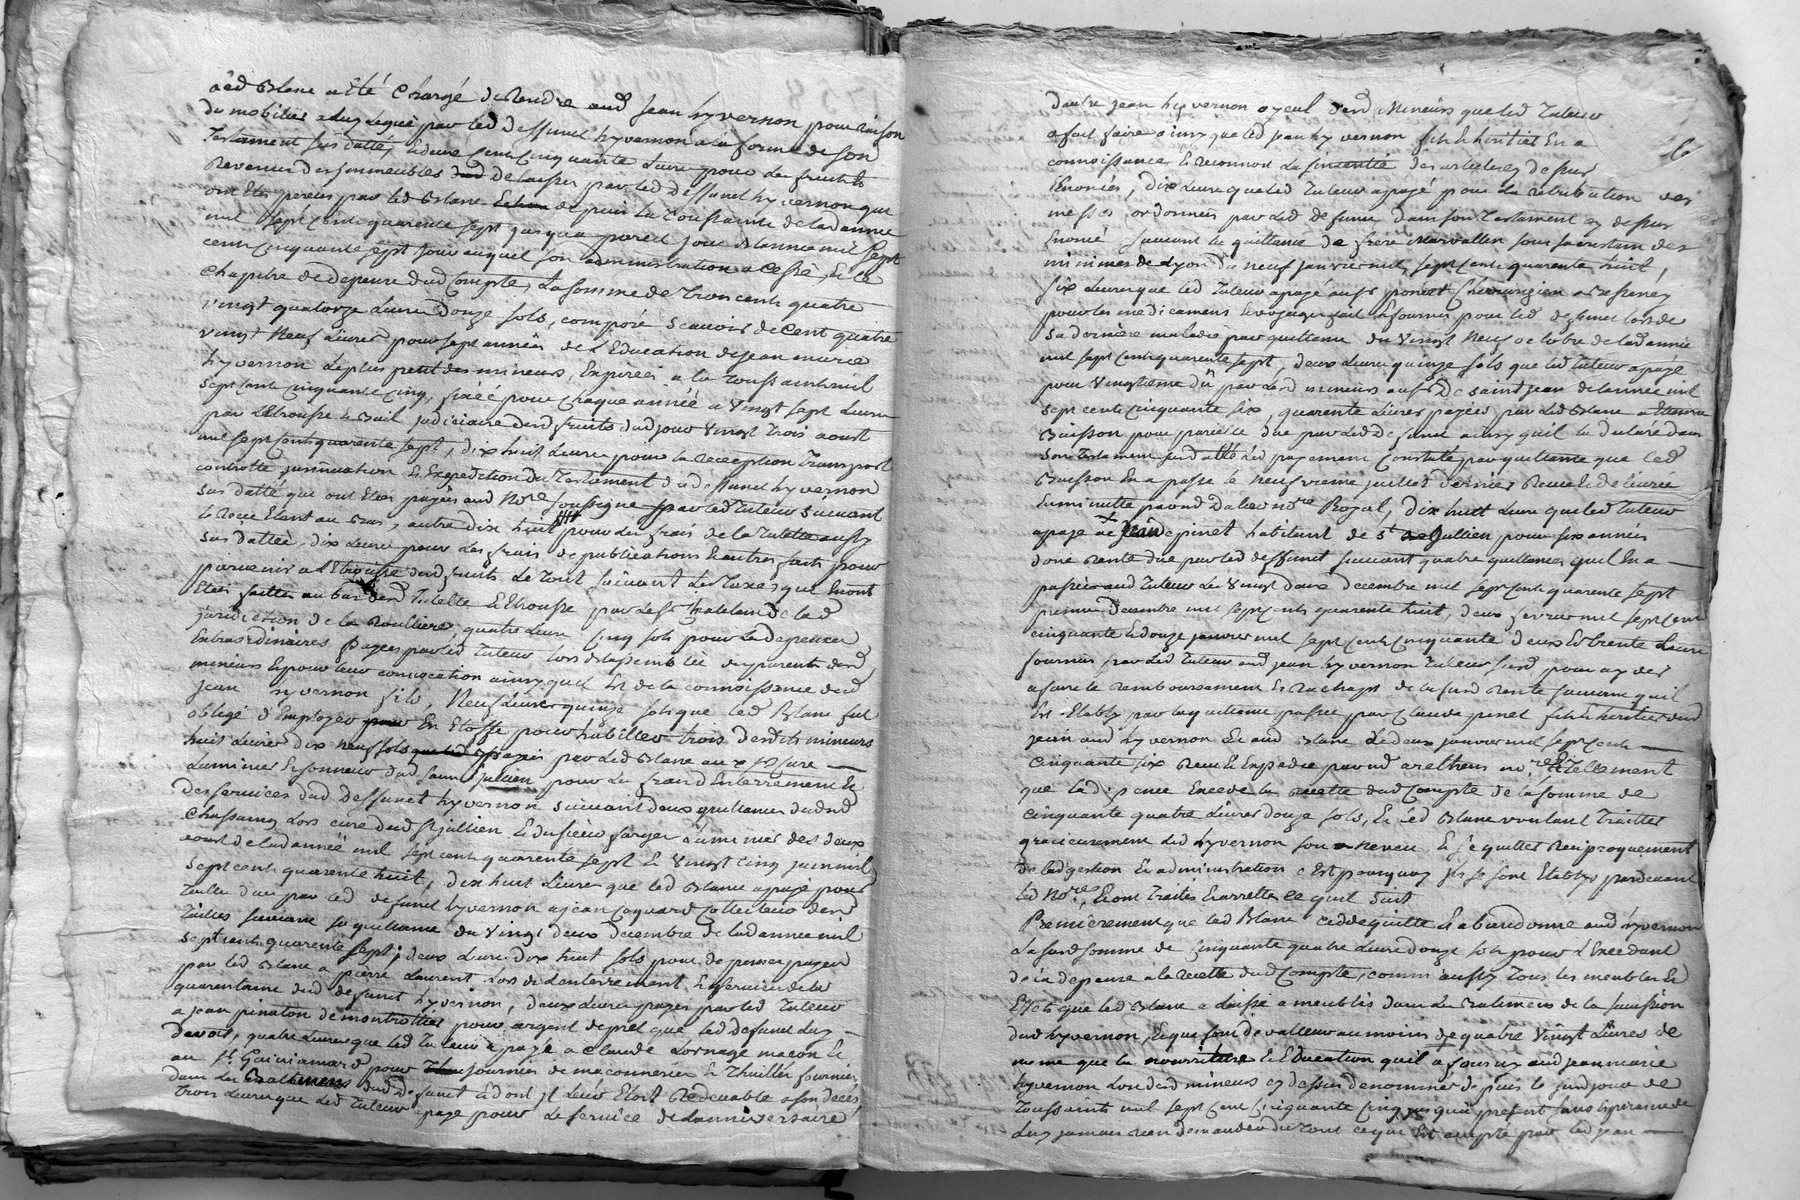 aëd Blanc a été chargé de Rendre aud Jean hyvernon pour raison
du mobilier a luy Legué par led deffunct hyvernon a la forme de son
Testament sus datté, Cent Cinquante Livres pour les fruits et
Revenus des immeubles delaissés par led deffunct hyvernon qui
ont étés perçus par led Blanc depuis la Toussaints de lad année
mil sept cent quarente sept jusqua pareil jour de lannée mil sept
cent cinquante sept jour auquel son administration a cessé, et le
chapitre de depense dud Compte, La somme de Trois cents quatre
vingt quatorze Livres Douze sols, composé scavoir de Cent quatre
vingt Neuf Livres pour sept années de l'Education de jean marie
hyvernon Le plus petit des mineurs, Expirées a la Toussaints mil
sept cent cinquante cinq, fixéé pour chaque année a Vingt sept Livres
par L'Etrousse et Bail judiciaire desd fruits dud jour Vingt Trois aoust
mil sept cent quarente sept, dix huit Livres pour la reception Transport
controlle jnsinuation et Expedition du Testament dud deffunct hyvernon
sus datté qui ont Etés payés aud No.re soussigné par led Tuteur suivant
le Receu Etant au bas, autre dix huit pour les frais de la Tutelle aussy
sus dattée, dix Livres pour les frais de publications et autres faits pour
parvenir a L'Etrousse desd fruits Le Tout suivant Les Taxes qui En ont
Etés faittes au bas desd Tutelle et Etrousse par Le Sr. Chatelain de lad
juridiction de la Roulliere, quatre Livres cinq sols pour Les depenses
Extraordinaires payés par led Tuteur lors de lassemblée des parents desd
mineurs et pour leur convocation ainsy quil Est de la connoissance dud
jean hyvernon fils, Neuf Livres quinze sols que led Blanc fut
obligé d'Employer En Etoffe pour habiller trois desdits mineurs
huit Livres dix neuf sols payés par led Blanc aux
Luminier et sonneur dud saint jullien pour les frais d'Enterrement et
des services dud deffunct hyvernon suivant deux quittances dud
Chassaing Lors curé dud St jullien, et du sieur farger Luminier des deux
aoust de lad année mil sept cent quarente sept et Vingt cinq juin mil
sept cent quarente huit, dix huit Livres que led Blanc a payé pour
Tailles dues par led defunct hyvernon a jean Coquard Collecteur desd
Tailles suivant sa quittance du Vingt deux decembre de lad année mil
sept cent quarente sept, deux Livres dix huit sols pour depenses payées
par led Blanc a pierre Laurent Lors de Lenterrement, et service de la
quarentaine dud defunct hyvernon, deux Livres payés par led Tuteur
a jean pinaton de montrottier pour argent de pret que led defunct luy
devoit, quatre Livres que led tuteur a payé a Claude Lornage macon et
au Sr. pour journées de maconnerie et Thuilles fournies
dans les Batiments dud defunct et dont jl Leur Etoit Redevable a son deces
Trois Livres que led Tuteur a payé pour Le service de Lanniversaire
d'autre jean hyvernon ayeul desd Mineurs que led Tuteur
a fait faire ainsy que led jean hyvernon fils et heritier En a
connoissance et reconnoit La sincerité des articles dessus
Enoncés, dix Livres que led Tuteur a payé pour La retribution des
messes ordonnées par led defunct dans son Testament cy dessus
Enoncé suivant la quittance de frere Marvallin sous sacristain des
minimes de Lyon du neuf janvier mil sept cent quarente huit,
six Livres que led Tuteur a payé au Sr ponset Chirurgien
pour les medicaments et voyages faits et fournis pour led defunct lors de
sa derniere maladie par quittance du Vingt Neuf octobre de lad année
mil sept cent quarente sept, deux Livres quinze sols que led Tuteur a payé
pour Vingtieme dû par lesd mineurs au Sr. De saint jean de lannée mil
sept cent cinquante six, quarente Livres payées par led Blanc a
Buisson pour pareille due par led defunct ainsy quil la declaré dans
son Testament susd datté Led payement Constaté par quittance que led
Buisson En a passé le neufvieme juillet dernier Receu et delivré
En minutte par nd no.re Royal, dix huit Livres que led Tuteur
a payé a jean pinet habitant de St jullien pour six années
d'une Rente due par led deffunct suivant quatre quittances quil En a
passées aud Tuteur les Vingt deux decembre mil sept cent quarente sept
premier decembre mil sept cents quarente huit, deux fevrier mil sept cent
cinquante et douze janvier mil sept cent cinquante deux Et trente Livres
fournies par led Tuteur aud jean hyvernon Tuteur susd pour ayder
a faire le remboursement et Rachapt de la susd Rente suivant quil
Est Etably par la quittance passée par Claude pinet fils et heritier dud
jean aud hyvernon Et aud Blanc Le deux janvier mil sept cent
cinquante six Receu et Expedié par nd no.re Et Tellement
que la depense Excede la recette dud Compte de la somme de
cinquante quatre Livres douze sols, Et led Blanc voulant Traitter
gracieusement led hyvernon son Neveu Et se quitter Reciproquement
de lad gestion et administration c'Est pourquoy jls se sont Etablys pardevant
led No.re, Et ont Traités Et arrettés ce quil suit
Premierement que led Blanc cedde quitte Et abandonne aud hyvernon
La susd somme de cinquante quatre Livres douze sols pour L'Excedant
de la depense a la Recette dud Compte, comm'aussy Tous les meubles Et
Effets que led Blanc a laissé a meublés dans les Batiments de la succession
dud hyvernon, Et qui sont de valleur au moins de quatre Vingt Livres de
meme que la nourriture et Education quil a fourny aud jean marie
hyvernon L'un desd mineurs cy dessus denommés depuis le susd jour de
Toussaints mil sept Cent Cinquante Cinq jusqu'a present sans Esperance de
luy jamais rien demander du tout ce qui Est accepté par led jean